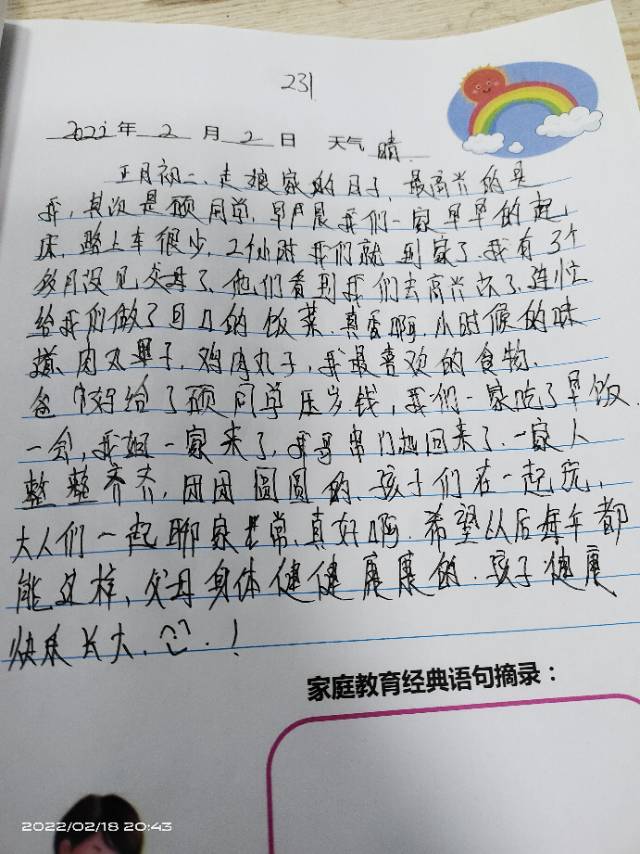 231
2022年2月2日 天气 晴.
正月初二、走娘家的日子,最高兴的是
我,其次是硕同学,早晨我们一家早早的起
床,路上车很少,2个小时我们就到家了.我有3个
多月没见父母了,他们看到我们去高兴坏了,连忙
给我们做了可口的饭菜.真香啊,小时候的味
道.肉丸子,鸡肉丸子,我最喜欢的食物.
爸给了硕同学压岁钱,我们一家吃了早饭.
一会,我姐一家来了,我哥串门也回来了.一家人
整整齐齐,团团圆圆的,孩子们在一起玩,
大人们一起聊家常,真好啊.希望以后每年都
能这样,父母身体健健康康的.孩子健康
快乐长大.!
家庭教育经典语句摘录:
2022/02/18 20:43